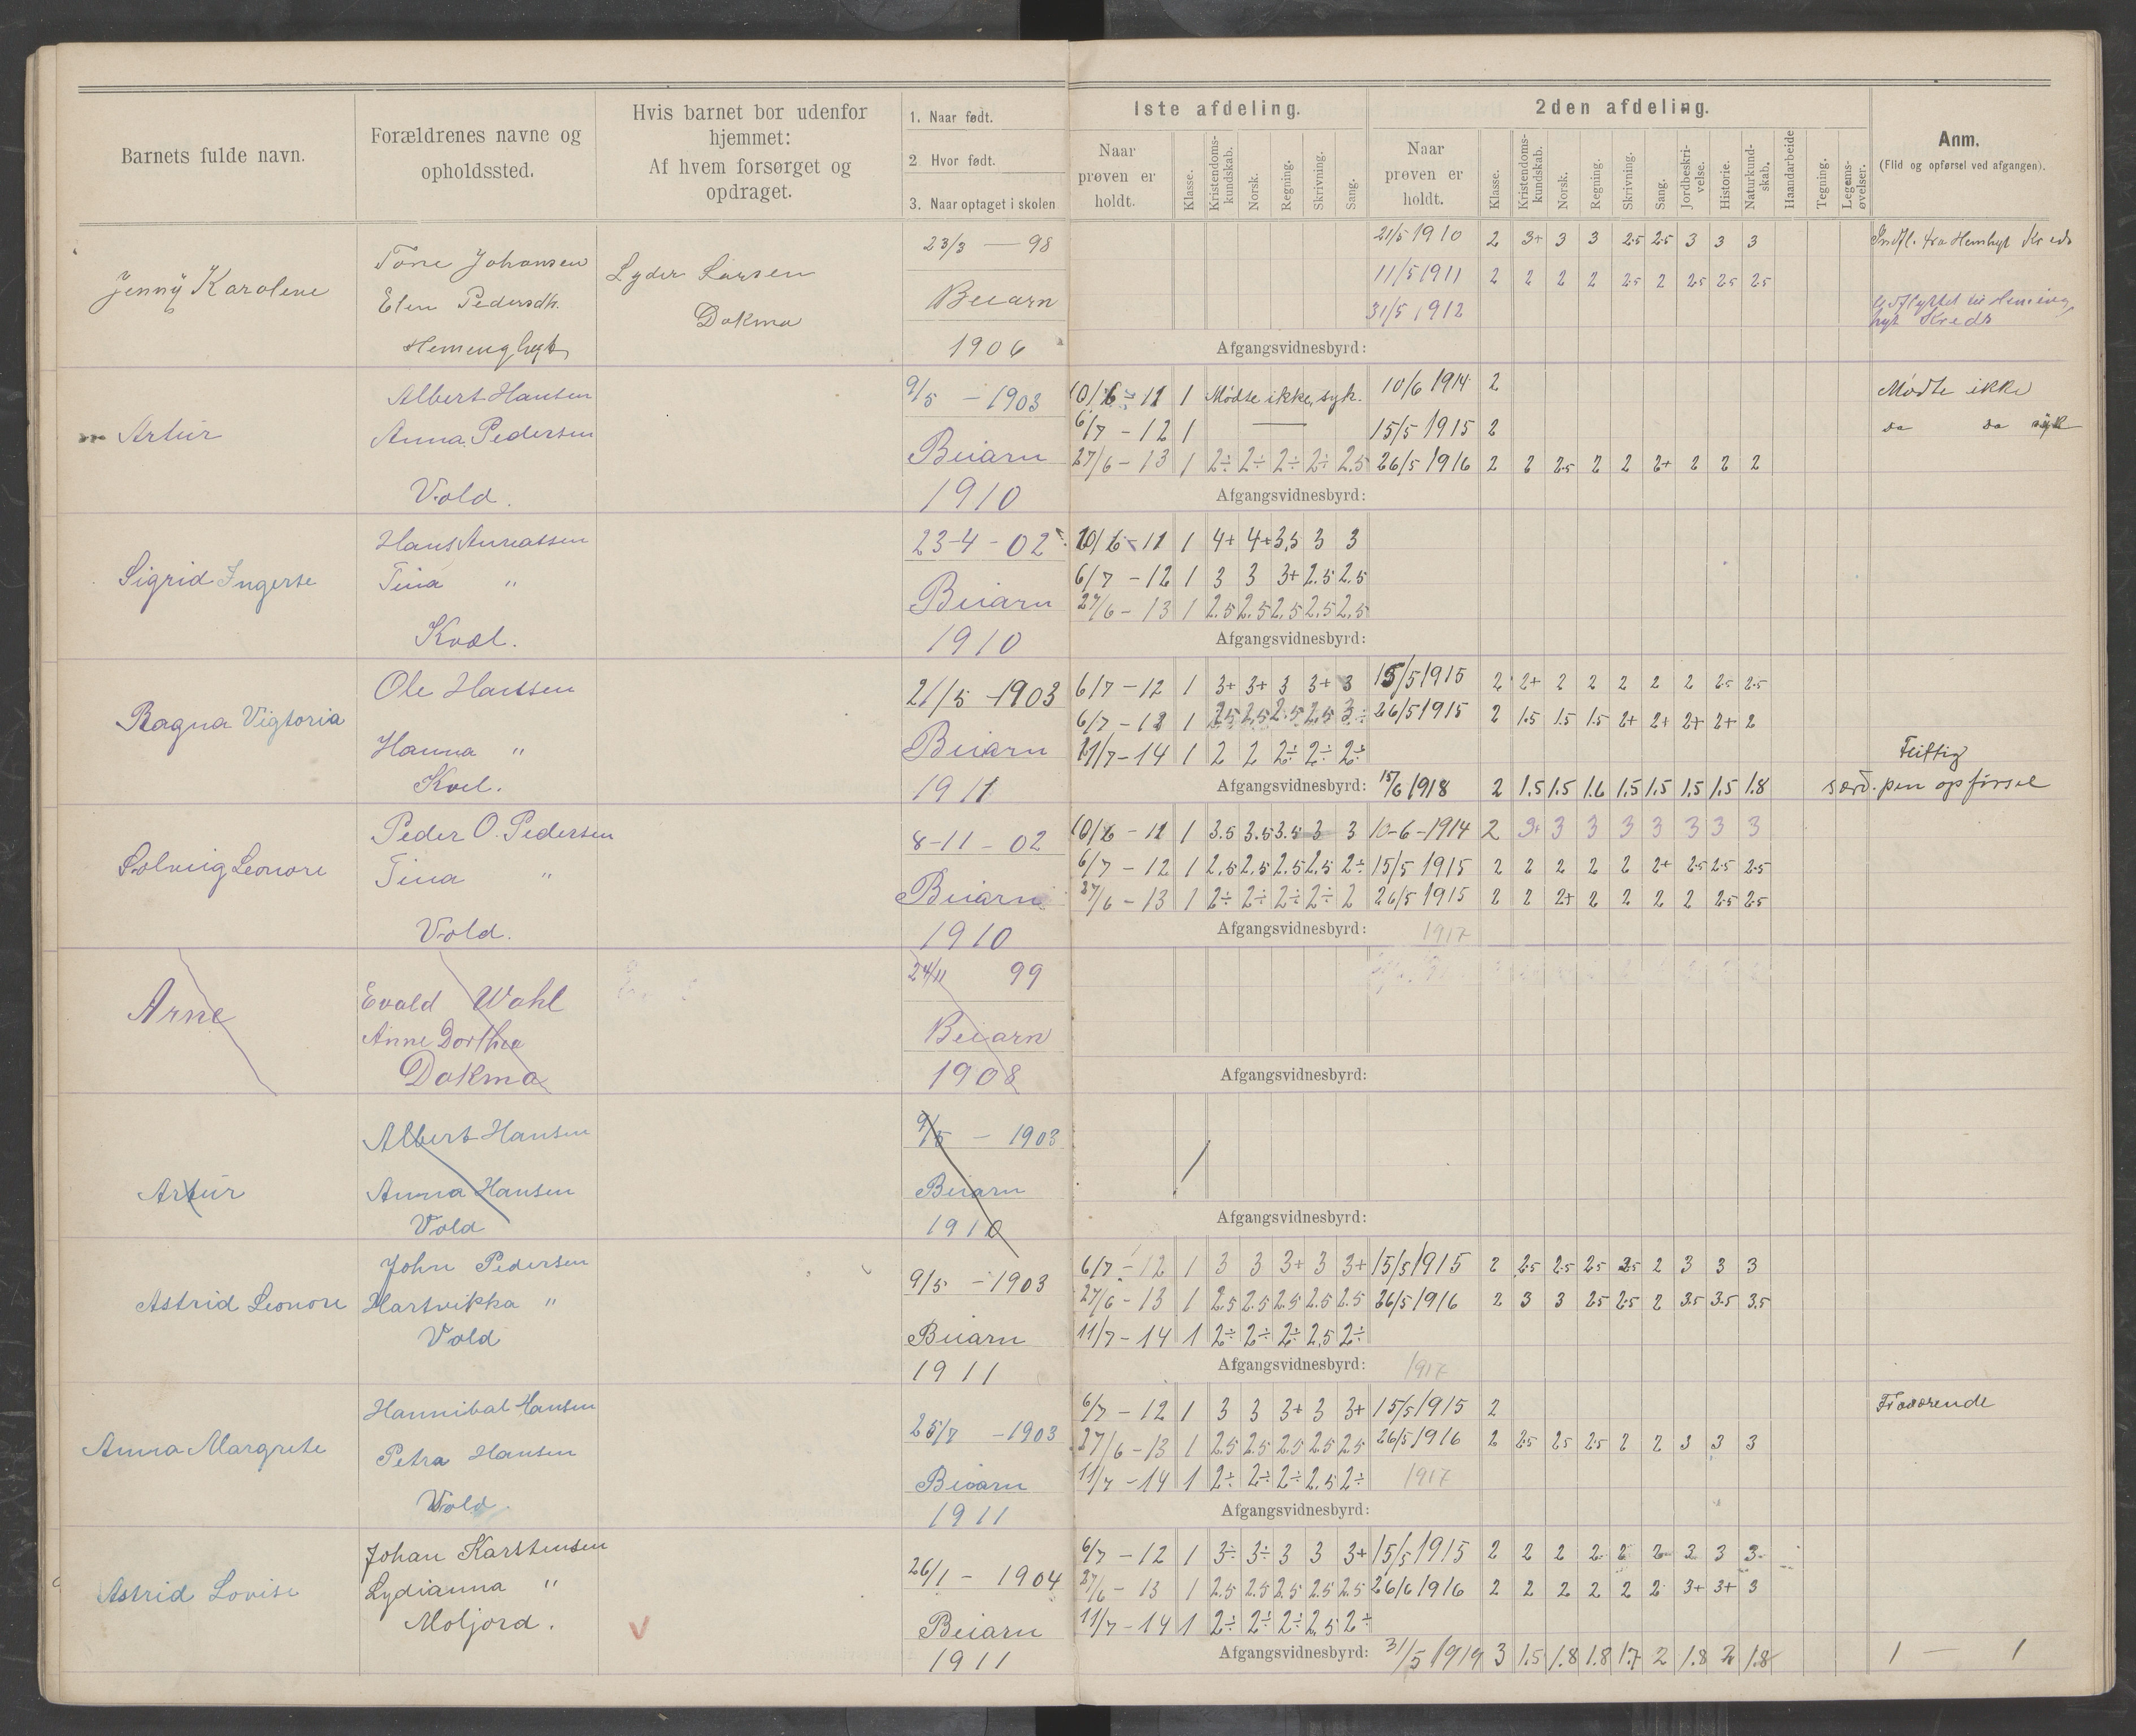 Barnets fulde navn.
Forældrenes navne og opholdssted.
Hvis barnet bor udenfor hjemmet:
Af hvem forsørget og opdraget.
1. Naar født.
2 Hvor født.
3. Naar optaget i skolen
1ste afdeling.
Naar prøven er holdt.
Klasse.
Kristendoms-kundskab.
Norsk.
Regning.
Skrivning.
Sang.
2den afdeling.
Naar prøven er holdt.
Klasse.
Kristendoms-kundskab.
Norsk.
Regning.
Skrivning.
Sang.
Jordbeskri-velse.
Historie.
Naturkund-skab.
Haandarbeide
Tegning.
Legems-øvelser.
Anm.
(Flid og opførsel ved afgangen).
Jenny Karolene
Tone Johansen
Elen Pedersdt.
Lyder Larsen
Dokma
23/3 — 98
Beiarn
1906
21/5 1910 2 3+ 3 3 2.5 2.5 3 3 3
11/5 1911 2 2 2 2 2.5 2 2.5 2.5 2.5
31/5 1912
Kreds
Kreds
Afgangsvidnesbyrd:
Artur
Albert Hansen
Anna Pedersen
Vold.
9/5 – 1903
Beiarn
1910
10/6 – 11 1 Mødte ikke, syk. 10/6 1914 2 Mødte ikke
6/7 – 12 1 — 15/5 1915 2 do do syk
27/6 – 13 1 2÷ 2÷ 2÷ 2÷ 2.5 26/5 1916 2 2 2.5 2 2 2+ 2 2 2
Afgangsvidnesbyrd:
Sigrid Ingerte
Hans Andreassen
Tina "
Kvæl.
23-4-02
Beiarn
1910
10/6 – 11 1 4+ 4+ 3,5 3 3
6/7 – 12 1 3 3 3+ 2.5 2.5
27/6 – 13 1 2.5 2.5 2.5 2.5 2.5
Afgangsvidnesbyrd:
Ragna Vigtoria
Ole Hansen
Hanna "
Kvel.
21/5 – 1903
Beiarn
1911
6/7 – 12 1 3+ 3+ 3 3+ 3 15/5 1915 2 2+ 2 2 2 2 2 2.5 2.5
6/7 – 13 1 2.5 2.5 2.5 2.5 3÷ 26/5 1915 2 1.5 1.5 1.5 2+ 2+ 2+ 2+ 2
11/7 – 14 1 2 2 2÷ 2÷ 2÷ Flittig
Afgangsvidnesbyrd: 15/6 1918 2 1.5 1.5 1.6 1.5 1.5 1.5 1.5 1.8 særd. pen opførsel
Solveig Leonore
Peder O. Pedersen
Tina "
Vold.
8-11-02
Beiarn
1910
10/6 – 11 1 3.5 3.5 3.5 3 3 10-6-1914 2 3+ 3 3 3 3 3 3 3
6/7 – 12 1 2.5 2.5 2.5 2.5 2÷ 15/5 1915 2 2 2 2 2 2+ 2.5 2.5 2.5
27/6 – 13 1 2÷ 2÷ 2÷ 2÷ 2 26/5 1915 2 2 2+ 2 2 2 2 2.5 2.5
Afgangsvidnesbyrd: 1917
Arne
Evald Wahl
Anne Dorthea
Dokma
24/11 99
Beiarn
1908
Afgangsvidnesbyrd:
Artur
Albert Hansen
Anna Hansen
Vold
9/5 – 1903
Beiarn
1910
Afgangsvidnesbyrd:
Astrid Leonore
John Pedersen
Hartvikka "
Vold
9/5 – 1903
Beiarn
1911
6/7 – 12 1 3 3 3+ 3 3+ 15/5 1915 2 2.5 2.5 2.5 2.5 2 3 3 3
27/6 – 13 1 2.5 2.5 2.5 2.5 2.5 26/5 1916 2 3 3 2.5 2.5 2 3.5 3.5 3.5
11/7 – 14 1 2÷ 2÷ 2÷ 2.5 2÷
Afgangsvidnesbyrd: 1917
Anna Margrete
Hannibal Hansen
Petra Hansen
Vold.
25/7 – 1903
Beiarn
1911
6/7 – 12 1 3 3 3+ 3 3+ 15/5 1915 2 Fraværende
27/6 – 13 1 2.5 2.5 2.5 2.5 2.5 26/5 1916 2 2.5 2.5 2.5 2 2 3 3 3
11/7 – 14 1 2÷ 2÷ 2÷ 2.5 2÷ 1917
Afgangsvidnesbyrd:
Astrid Lovise
Johan Karstensen
Lydianna "
Moljord.
26/1 – 1904
Beiarn
1911
6/7 – 12 1 3÷ 3÷ 3 3 3+ 15/5 1915 2 2 2 2 2 2 3 3 3
27/6 – 13 1 2.5 2.5 2.5 2.5 2.5 26/6 1916 2 2 2 2 2 2 3+ 3+ 3
11/7 – 14 1 2÷ 2÷ 2÷ 2.5 2÷
Afgangsvidnesbyrd: 31/5 1919 3 1.5 1.8 1.8 1.7 2 1.8 2 1.8 1 – 1